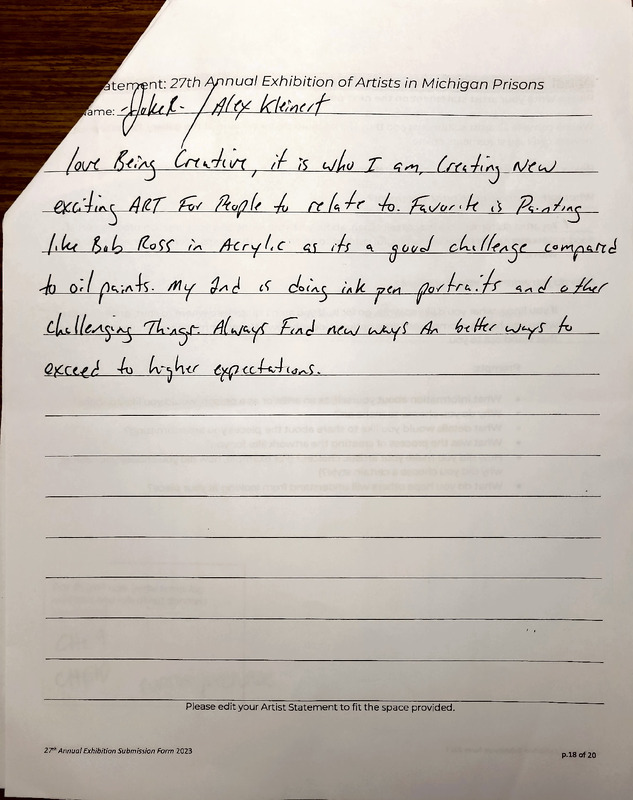 atement: 27th Annual Exhibition of Artists in Michigan Prisons
ame: -Joker- / Alex Kleinert
love Being Creative, it is who I am, Creating New
exciting ART For People to relate to. Favorite is Painting
like Bob Ross in Acrylic as its a good challenge compared
to oil paints. My 2nd is doing ink pen portraits and other
challenging Things. Always Find new ways An better ways to
exceed to higher expectations.
Please edit your Artist Statement to fit the space provided.
27th Annual Exhibition Submission Form 2023
p.18 of 20